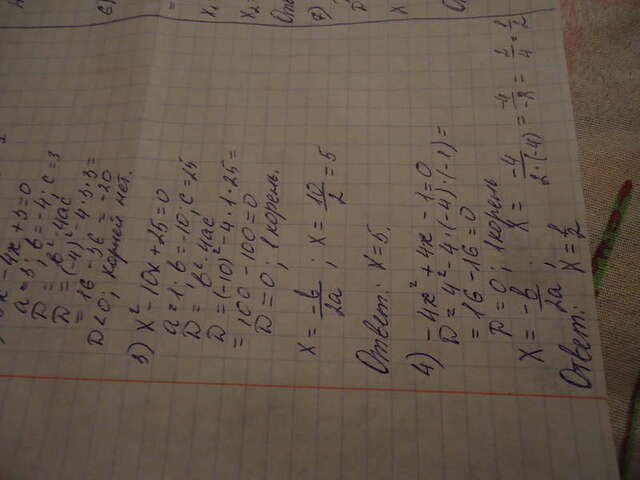 - 4x + 3 = 0
a = 3; b = -4; c = 3
D = b² - 4ac;
D = (-4)² - 4·3·3 =
= 16 - 36 = -20
D < 0; корней нет.
3) x² - 10x + 25 = 0
a = 1; b = -10; c = 25
D = b² - 4ac;
D = (-10)² - 4·1·25 =
= 100 - 100 = 0
D = 0; 1 корень.
x = -b/2a; x = 10/2 = 5
Ответ: x = 5.
4) -4x² + 4x - 1 = 0
D = 4² - 4·(-4)·(-1) =
= 16 - 16 = 0
D = 0; 1 корень
x = -b/2a; x = -4/2·(-4) = -4/-8 = 2/4 = 1/2
Ответ: x = 1/2